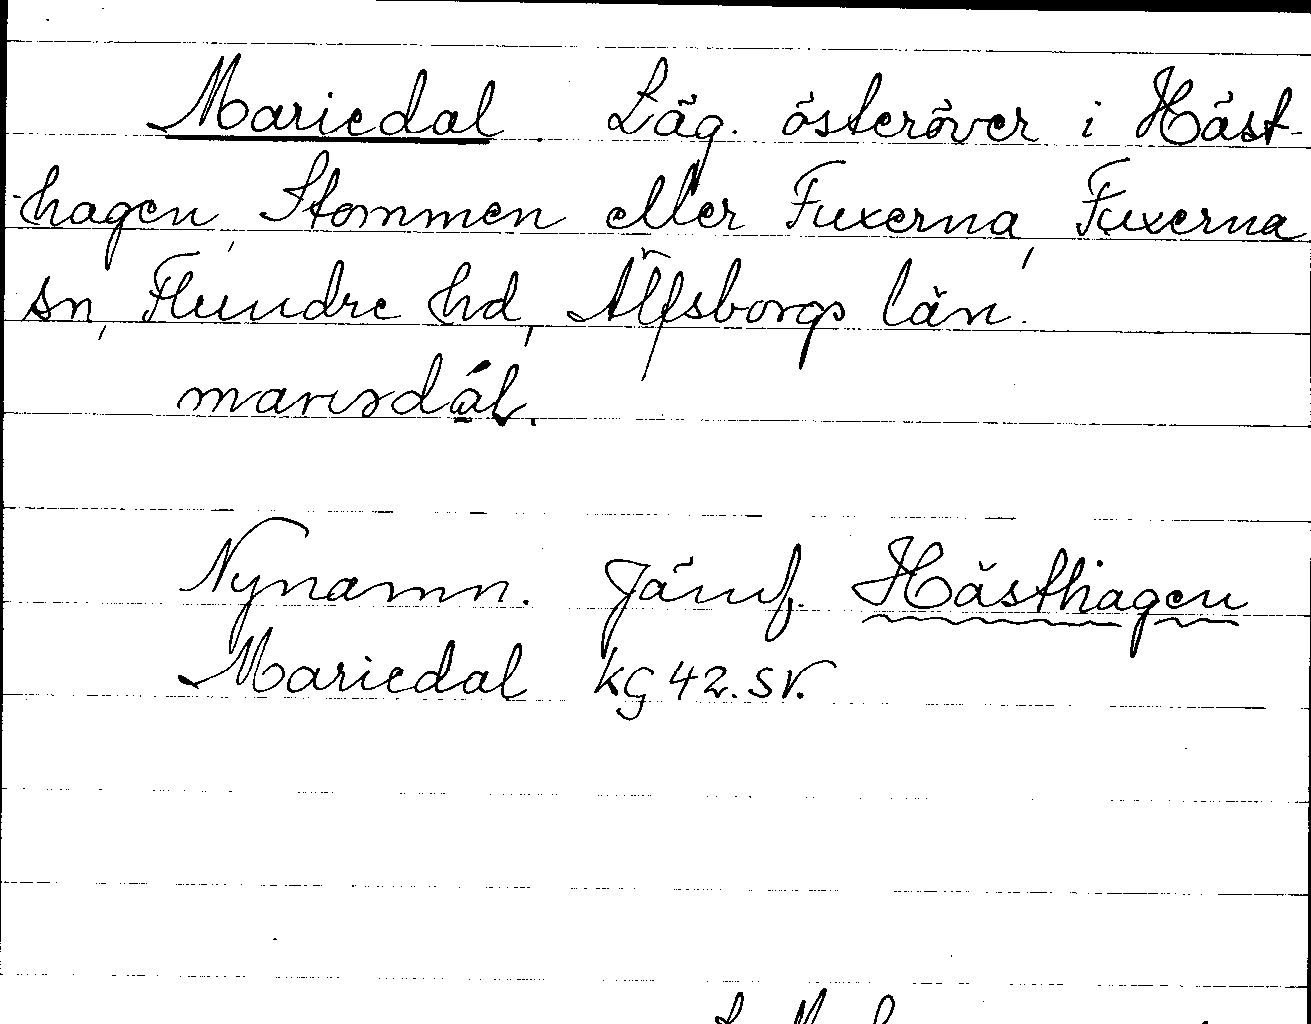 Mariedal. Läg. österöver i Häst-
hagen, Stommen eller Fuxerna, Fuxerna
sn, Flundre hd, Älfsborgs län.
marɩsdál.
Nynamn. Jämf. Hästhagen
Mariedal KG 42. SV.